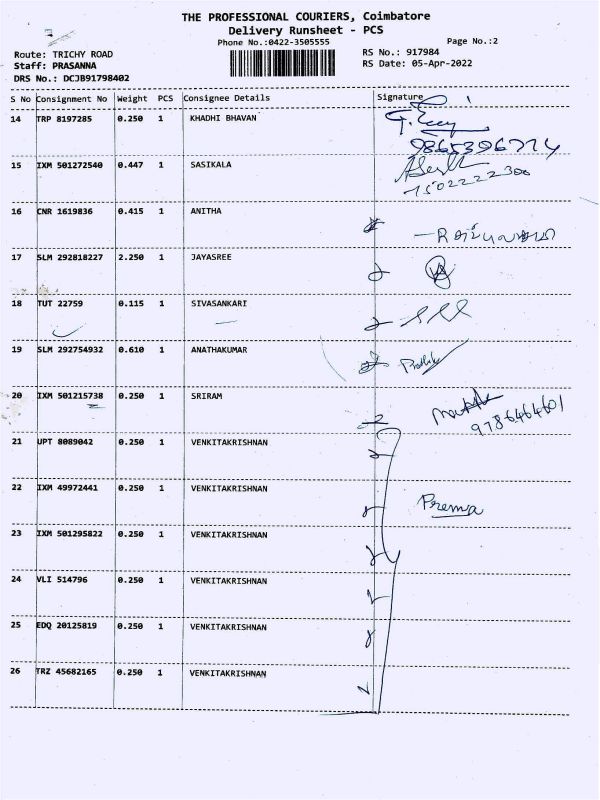 THE PROFESSIONAL COURIERS, Coimbatore
Delivery Runsheet - PCS
Phone No.:0422-3505555
Page No.:2
Route: TRICHY ROAD
RS No.: 917984
Staff: PRASANNA
RS Date: 05-Apr-2022
DRS No.: DCJB91798402
S No Consignment No Weight PCS Consignee Details Signature
14 TRP 8197285 0.250 1 KHADHI BHAVAN
9865396774
15 IXM 501272540 0.447 1 SASIKALA
7502222300
16 CNR 1619836 0.415 1 ANITHA
17 SLM 292818227 2.250 1 JAYASREE
18 TUT 22759 0.115 1 SIVASANKARI
19 SLM 292754932 0.610 1 ANATHAKUMAR
20 IXM 501215738 0.250 1 SRIRAM
9786464601
21 UPT 8089042 0.250 1 VENKITAKRISHNAN
22 IXM 49972441 0.250 1 VENKITAKRISHNAN Prema
23 IXM 501295822 0.250 1 VENKITAKRISHNAN
24 VLI 514796 0.250 1 VENKITAKRISHNAN
25 EDQ 20125819 0.250 1 VENKITAKRISHNAN
26 TRZ 45682165 0.250 1 VENKITAKRISHNAN